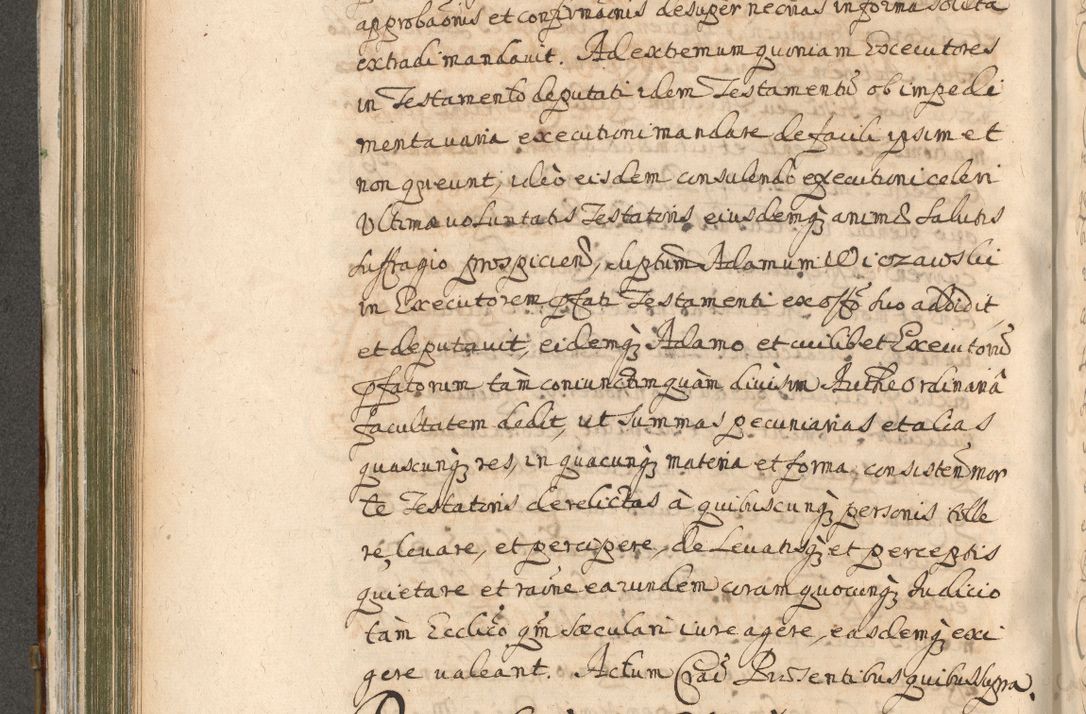 approbaōnis et confirmaōnis desuper necrīas in forma solita
extradi mandavit. Ad extremum quoniam Executores
in Testamento deputati idem Testamentū ob impedi
menta varia executioni mandare de facili ipsim et
non queunt, ideò eisdem consulendò executioni celeri
Ultimæ voluntatis Testatoris eiusdemq; animæ salutis
suffragio prospicien̄, suptum Adamum Wiozawski
in Executorem pfati Testamenti ex offō suo addidit,
et deputavit, eidemq; Adamo et cuilibet Executorū
pfatorum tàm coniunctim quàm divisim Authe Ordinariâ
facultatem dedit, ut summas pecuniarias et alias
quascunq; res, in quacunq; materia et forma, consisten̄ mor
te Testatoris derelictas à quibuscunq; personis tolle
re, levare, et percipere, de Levatisq; et perceptis
quietare et raōne earundem coram quocunq; Judicio
tàm Eccliēo qm̄ sæculari iure agere, easdemq; exi
gere valeant. Actum Craē Præsentibus quibus supra.